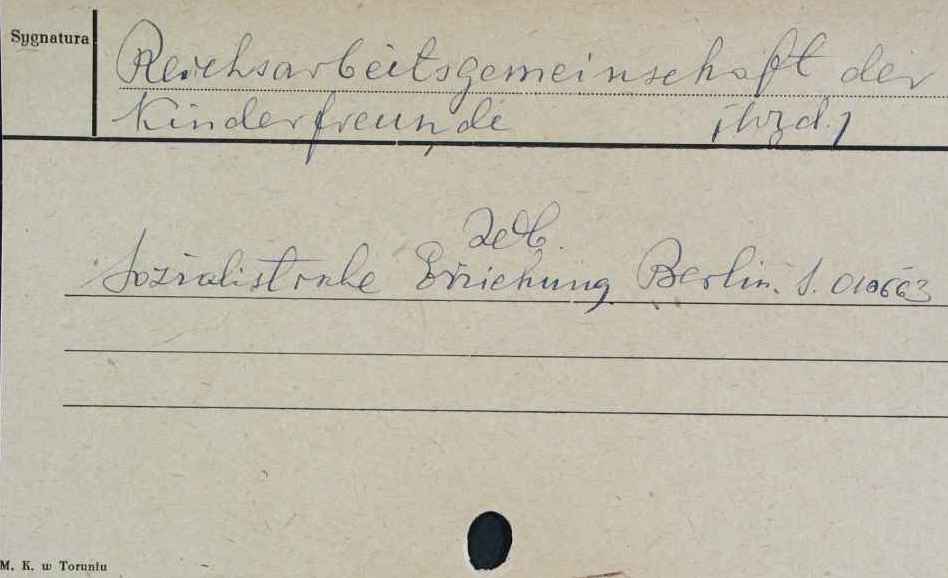 Sygnatura
Reichsarbeitsgemeinschaft der
Kinderfreunde (wyd.)
Zob.
Sozialistische Erziehung Berlin. S. 010663
M. K. w Toruniu